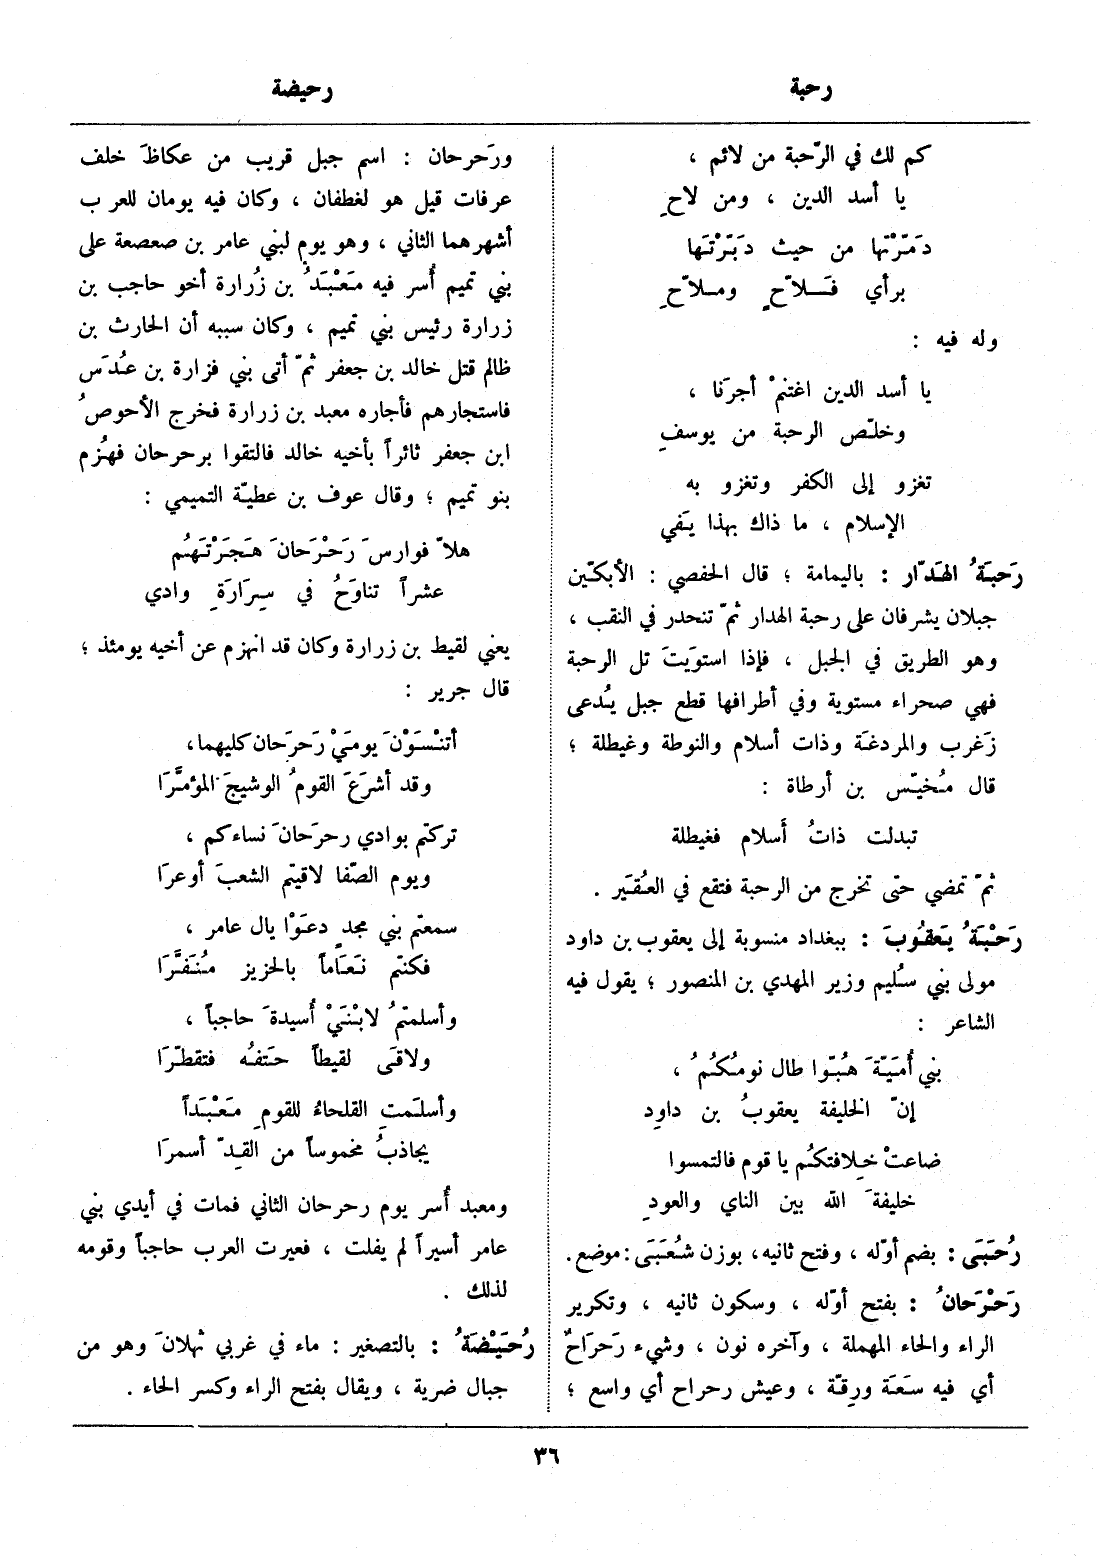 رحبة
رحيضة
كم لك في الرّحبة من لائم ،
يا أسد الدين ، ومن لاحِ
دَمّرْتَها من حيث دَبّرْتَها
برأي فَلاّحٍ وملاّحِ
وله فيه :
يا أسد الدين اغتنمْ أجرَنا ،
وخلّص الرحبة من يوسفِ
تغزو إلى الكفر وتغزو به
الإسلام ، ما ذاك بهذا يَفي
رَحبَةُ الهَدّار : باليمامة ؛ قال الحفصي : الأبكّين
جبلان يشرفان على رحبة الهدار ثمّ تنحدر في النقب ،
وهو الطريق في الجبل ، فإذا استويَتَ تل الرحبة
فهي صحراء مستوية وفي أطرافها قطع جبل يُدعى
زَغرب والمردغَة وذات أسلام والنوطة وغيطلة ؛
قال مُخيّس بن أرطاة :
تبدلت ذاتُ أَسلام فغيطلة
ثمّ تمضي حتى تخرج من الرحبة فتقع في العُقَير .
رَحْبَةُ يَعقُوبَ : ببغداد منسوبة إلى يعقوب بن داود
مولى بني سُليم وزير المهدي بن المنصور ؛ يقول فيه
الشاعر :
بني أُمَيّةَ هُبّوا طال نومُكُمُ ،
إنّ الخليفة يعقوبُ بن داودِ
ضاعتْ خِلافتكُم يا قوم فالتمسوا
خليفةَ الله بين الناي والعودِ
رُحَبَى : بضم أوّله ، وفتح ثانيه، بوزن شُعَبَى : موضع.
رَحْرَحانُ : بفتح أوّله ، وسكون ثانيه ، وتكرير
الراء والحاء المهملة ، وآخره نون ، وشيء رَحرَاحٌ
أي فيه سَعَة ورِقّة ، وعيش رحراح أي واسع ؛
ورَحرحان : اسم جبل قريب من عكاظَ خلف
عرفات قيل هو لغطفان ، وكان فيه يومان للعرب
أشهرهما الثاني ، وهو يوم لبني عامر بن صعصعة على
بني تميم أُسر فيه مَعْبَدُ بن زُرارة أخو حاجب بن
زرارة رئيس بني تميم ، وكان سببه أن الحارث بن
ظالم قتل خالد بن جعفر ثمّ أتى بني فزارة بن عُدَس
فاستجارهم فأجاره معبد بن زرارة فخرج الأحوصُ
ابن جعفر ثائراً بأخيه خالد فالتقوا برحرحان فهُزم
بنو تميم ؛ وقال عوف بن عطيّة التميمي :
هلاّ فوارسَ رَحْرَحانَ هَجَرْتَهُم
عشراً تناوَحُ في سِرَارَةِ وادي
يعني لقيط بن زرارة وكان قد انهزم عن أخيه يومئذ ؛
قال جرير :
أتنْسَوْنَ يومَيْ رَحرَحان كليهما،
وقد أشرَعَ القومُ الوشيجَ المؤمَّرَا
تركتم بوادي رحرَحانَ نساءكم ،
ويوم الصّفا لاقيتم الشعبَ أوعرَا
سمعتم بني مجدٍ دعَوْا يال عامر ،
فكنتم نَعَاماً بالحزيز مُنَفَّرَا
وأسلمتمُ لابْنَيْ أُسيدةَ حاجباً ،
ولاقَى لقيطاً حَتفُه فتقطّرَا
وأسلَمتِ القلحاءُ للقومِ مَعْبَداً
يجاذبُ مخموساً من القِدّ أسمرَا
ومعبد أُسر يوم رحرحان الثاني فمات في أيدي بني
عامر أسيراً لم يفلت ، فعيرت العرب حاجباً وقومه
لذلك .
رُحَيْضَةُ : بالتصغير : ماء في غربي ثهلانَ وهو من
جبال ضرية ، ويقال بفتح الراء وكسر الحاء .
٣٦